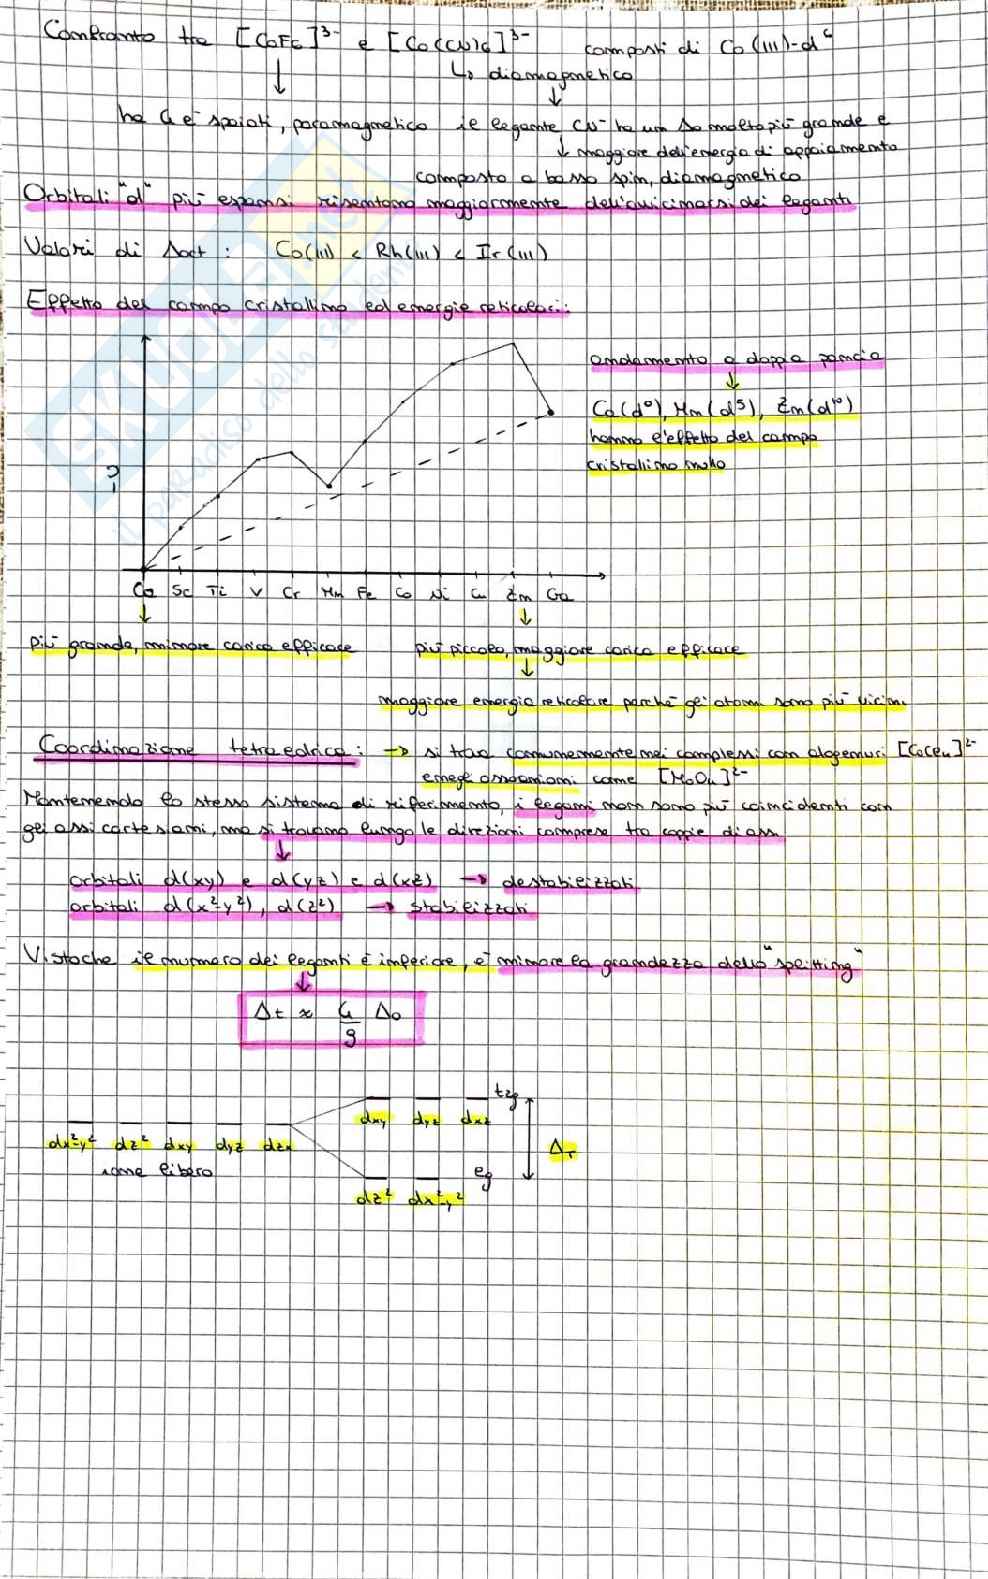 Confronto tra [CoF6]3- e [Co(CN)6]3- composti di Co(III)-d6
↳ diamagnetico
ha 4 e- spaiati, paramagnetico il legante CN- ha un Δo molto più grande e
↓ maggiore dell'energia di appaiamento
composto a basso spin, diamagnetico
Orbitali "d" più espansi risentono maggiormente dell'avvicinarsi dei leganti
Valori di Δoct : Co(III) < Rh(III) < Ir(III)
Effetto del campo cristallino ed energie reticolari:
andamento a doppia pancia
Ca(d0), Mn(d5), Zn(d10)
hanno l'effetto del campo
cristallino nullo
-U
Ca Sc Ti V Cr Mn Fe Co Ni Cu Zn Ga
più grande, minore carica efficace più piccolo, maggiore carica efficace
maggiore energia reticolare perché gli atomi sono più vicini
Coordinazione tetraedrica: → si trova comunemente nei complessi con alogenuri [CoCl4]2-
e negli ossoanioni come [MoO4]2-
Mantenendo lo stesso sistema di riferimento, i legami non sono più coincidenti con
gli assi cartesiani, ma si trovano lungo le direzioni comprese tra coppie di assi
orbitali d(xy) e d(yz) e d(xz) → destabilizzati
orbitali d(x²-y²), d(z²) → stabilizzati
Visto che il numero dei leganti è inferiore, è minore la grandezza dello "splitting"
Δt ≈ 4/9 Δo
t2g
dxy dyz dxz
dx²-y² dz² dxy dyz dzx
ΔT
ione libero
eg
dz² dx²-y²
SKUOLA.net
il paradiso dello studente